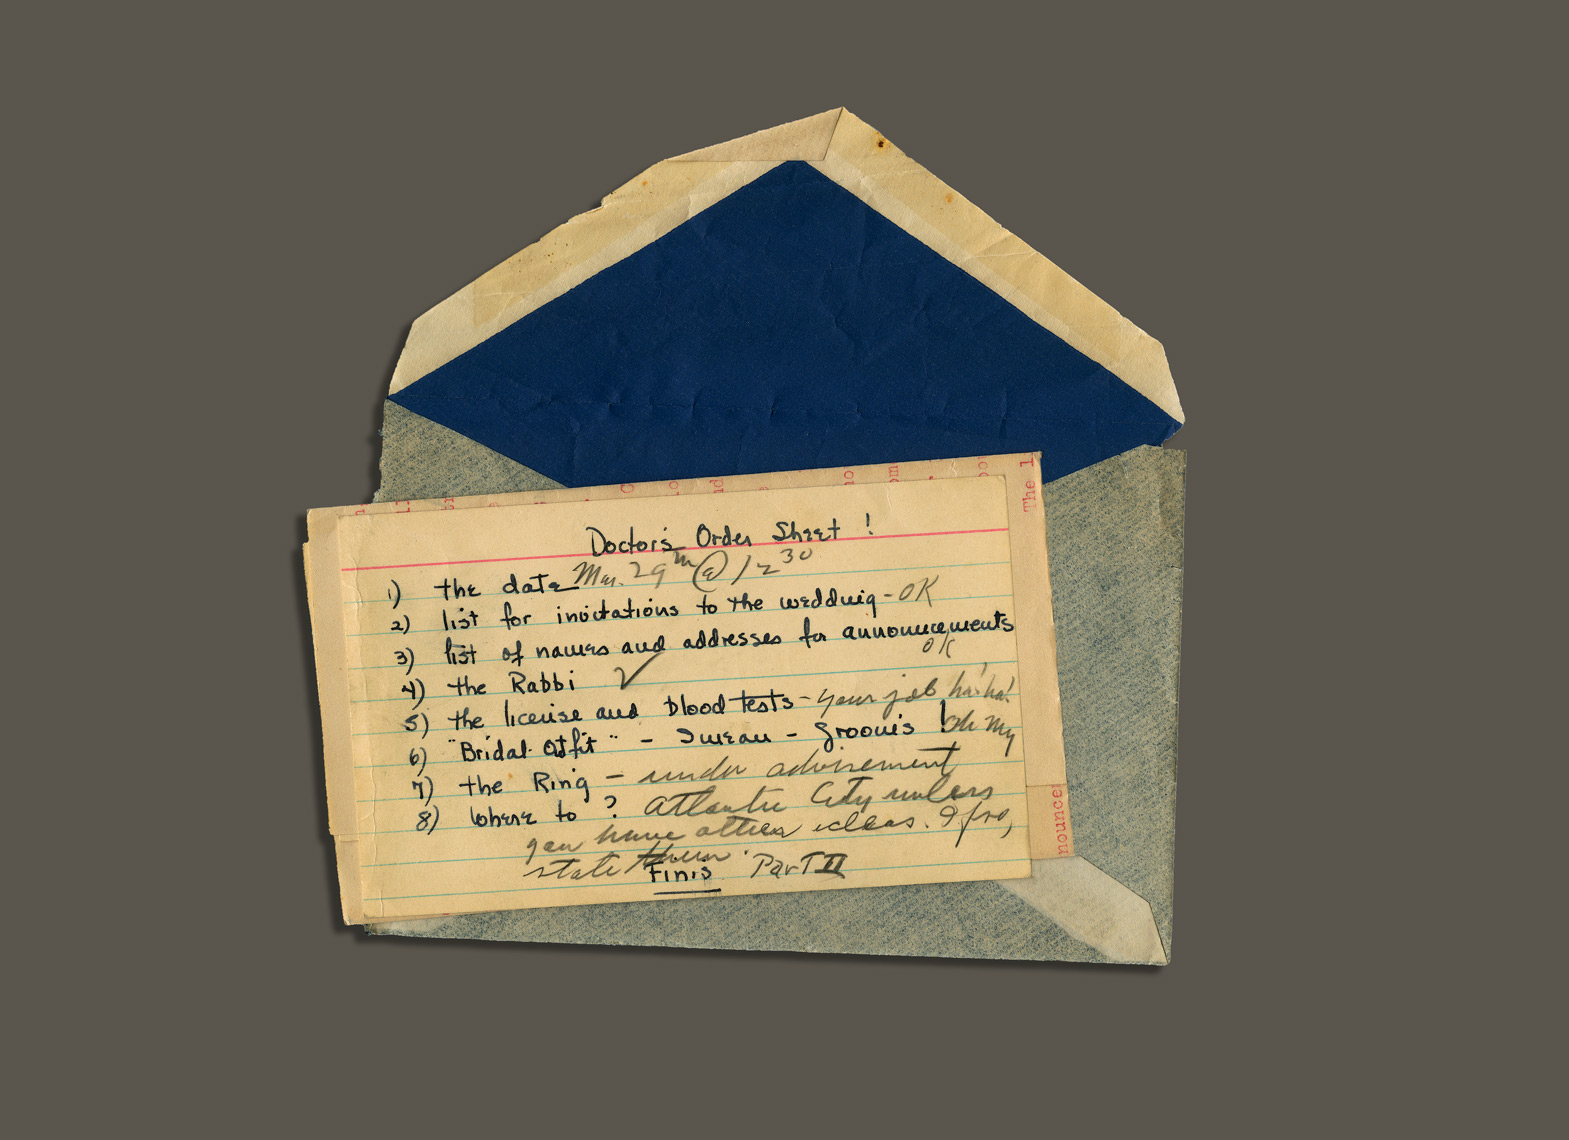 Doctor's Order Sheet!
1) the date Mar. 29th @ 12 30
2) list for invitations to the wedding - OK
3) list of names and addresses for announcements
OK
4) the Rabbi ✓
5) the license and blood tests - your job ha! ha!
6) "Bridal Outfit" - I mean - groom's! Oh My
7) the Ring - under advisement
8) Where to? Atlantic City unless
you have other ideas. If so,
state them.
Finis Part II
The l
nounce